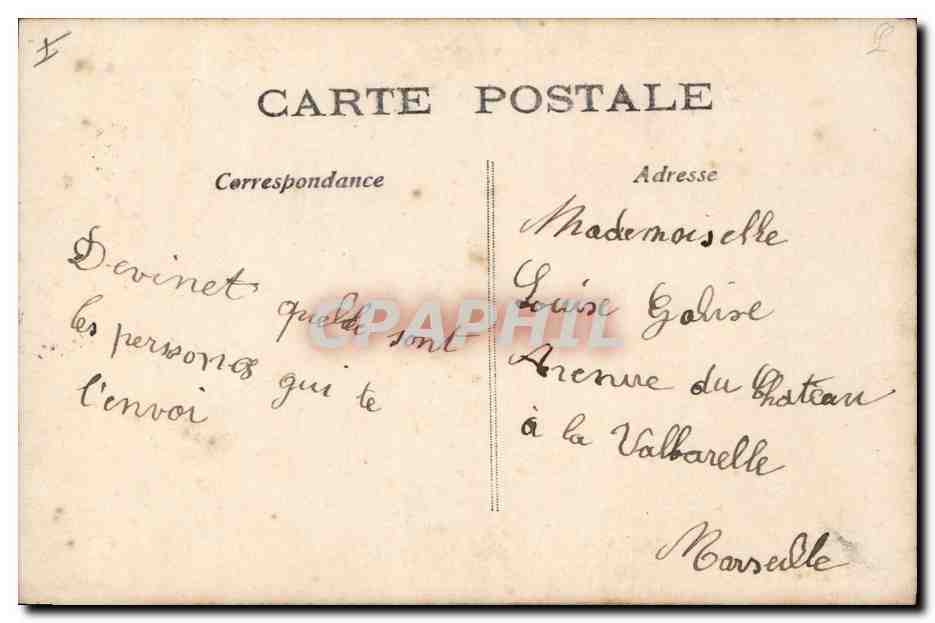 CARTE POSTALE
Correspondance
Devinet quelle sont
les persones qui te
l'envoi
Adresse
Mademoiselle
Louise Galise
Avenue du Chateau
à la Valbarelle
Marseille
CPAPHIL